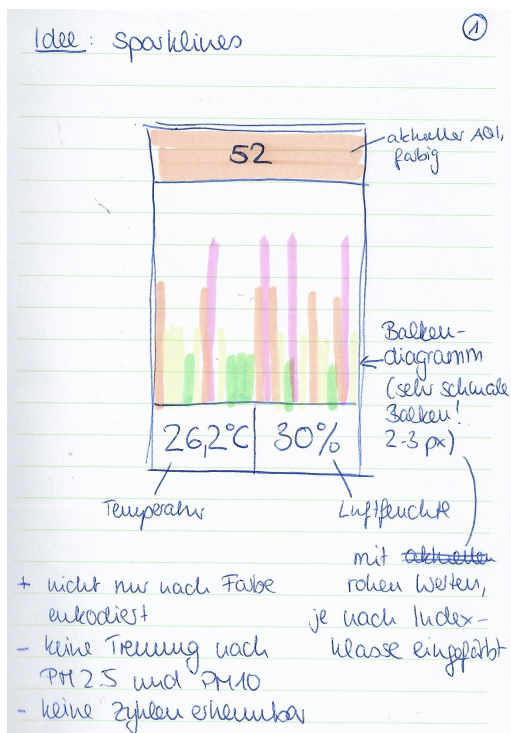 Idee: Sparklines
1
aktueller AQI,
farbig
52
Balken-
diagramm
(sehr schmale
Balken!
2-3 px)
26,2°C
30%
Temperatur
Luftfeuchte
mit aktuellen
rohen Werten,
je nach Index-
klasse eingefärbt
+ nicht nur nach Farbe
enkodiert
- keine Trennung nach
PM2.5 und PM10
- keine Zyklen erkennbar